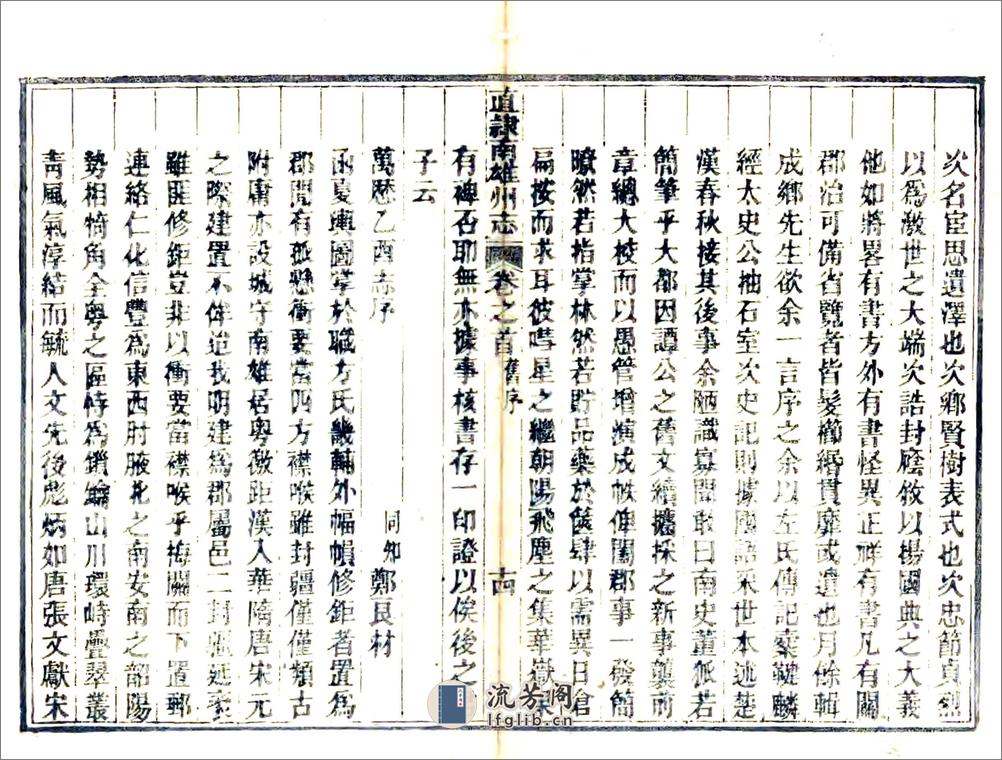 次名宦思遺澤也次鄉賢樹表式也次忠節貞烈
以爲激世之大端次誥封廕敘以揚國典之大義
他如將畧有書方外有書怪異正祥有書凡有關
郡治可備省覽者皆髮櫛緡貫靡或遺也月餘輯
成鄉先生欲余一言序之余以左氏傳記素鞁麟
經太史公抽石室次史記則據國語采世本述楚
漢春秋接其後事余陋識寡聞敢曰南史董狐若
簡筆乎大都因譚公之舊文續攟採之新事襲前
章總大校而以愚管增演成帙俾闔郡事一發簡
瞭然若指掌林然若貯品藥於篋肆以需異日倉
扁按而求耳彼嘒星之繼朝陽飛塵之集華嶽
有裨否耶無亦據事核書存一印證以俟後之
子云
萬歷乙酉志序
同知鄭良材
函夏輿圖掌於職方氏畿輔外幅幀修鉅者置爲
郡間有孤懸衝要當四方襟喉雖封疆僅僅類古
附庸亦設城守南雄居粵徼距漢入華隋唐宋元
之際建置不侔迨我明建爲郡屬邑二封 延袤
雖匪修鉅豈非以衝要當襟喉乎梅關而下置郵
連絡仁化信豐爲東西肘腋北之南安南之韶陽
勢相犄角全粤之區恃爲鎖鑰山川環峙疊翠叢
靑風氣淳結而毓人文先後彪炳如唐張文獻宋
直隸南雄州志
卷之首
舊序
十四
流芳阁
lfglib.cn